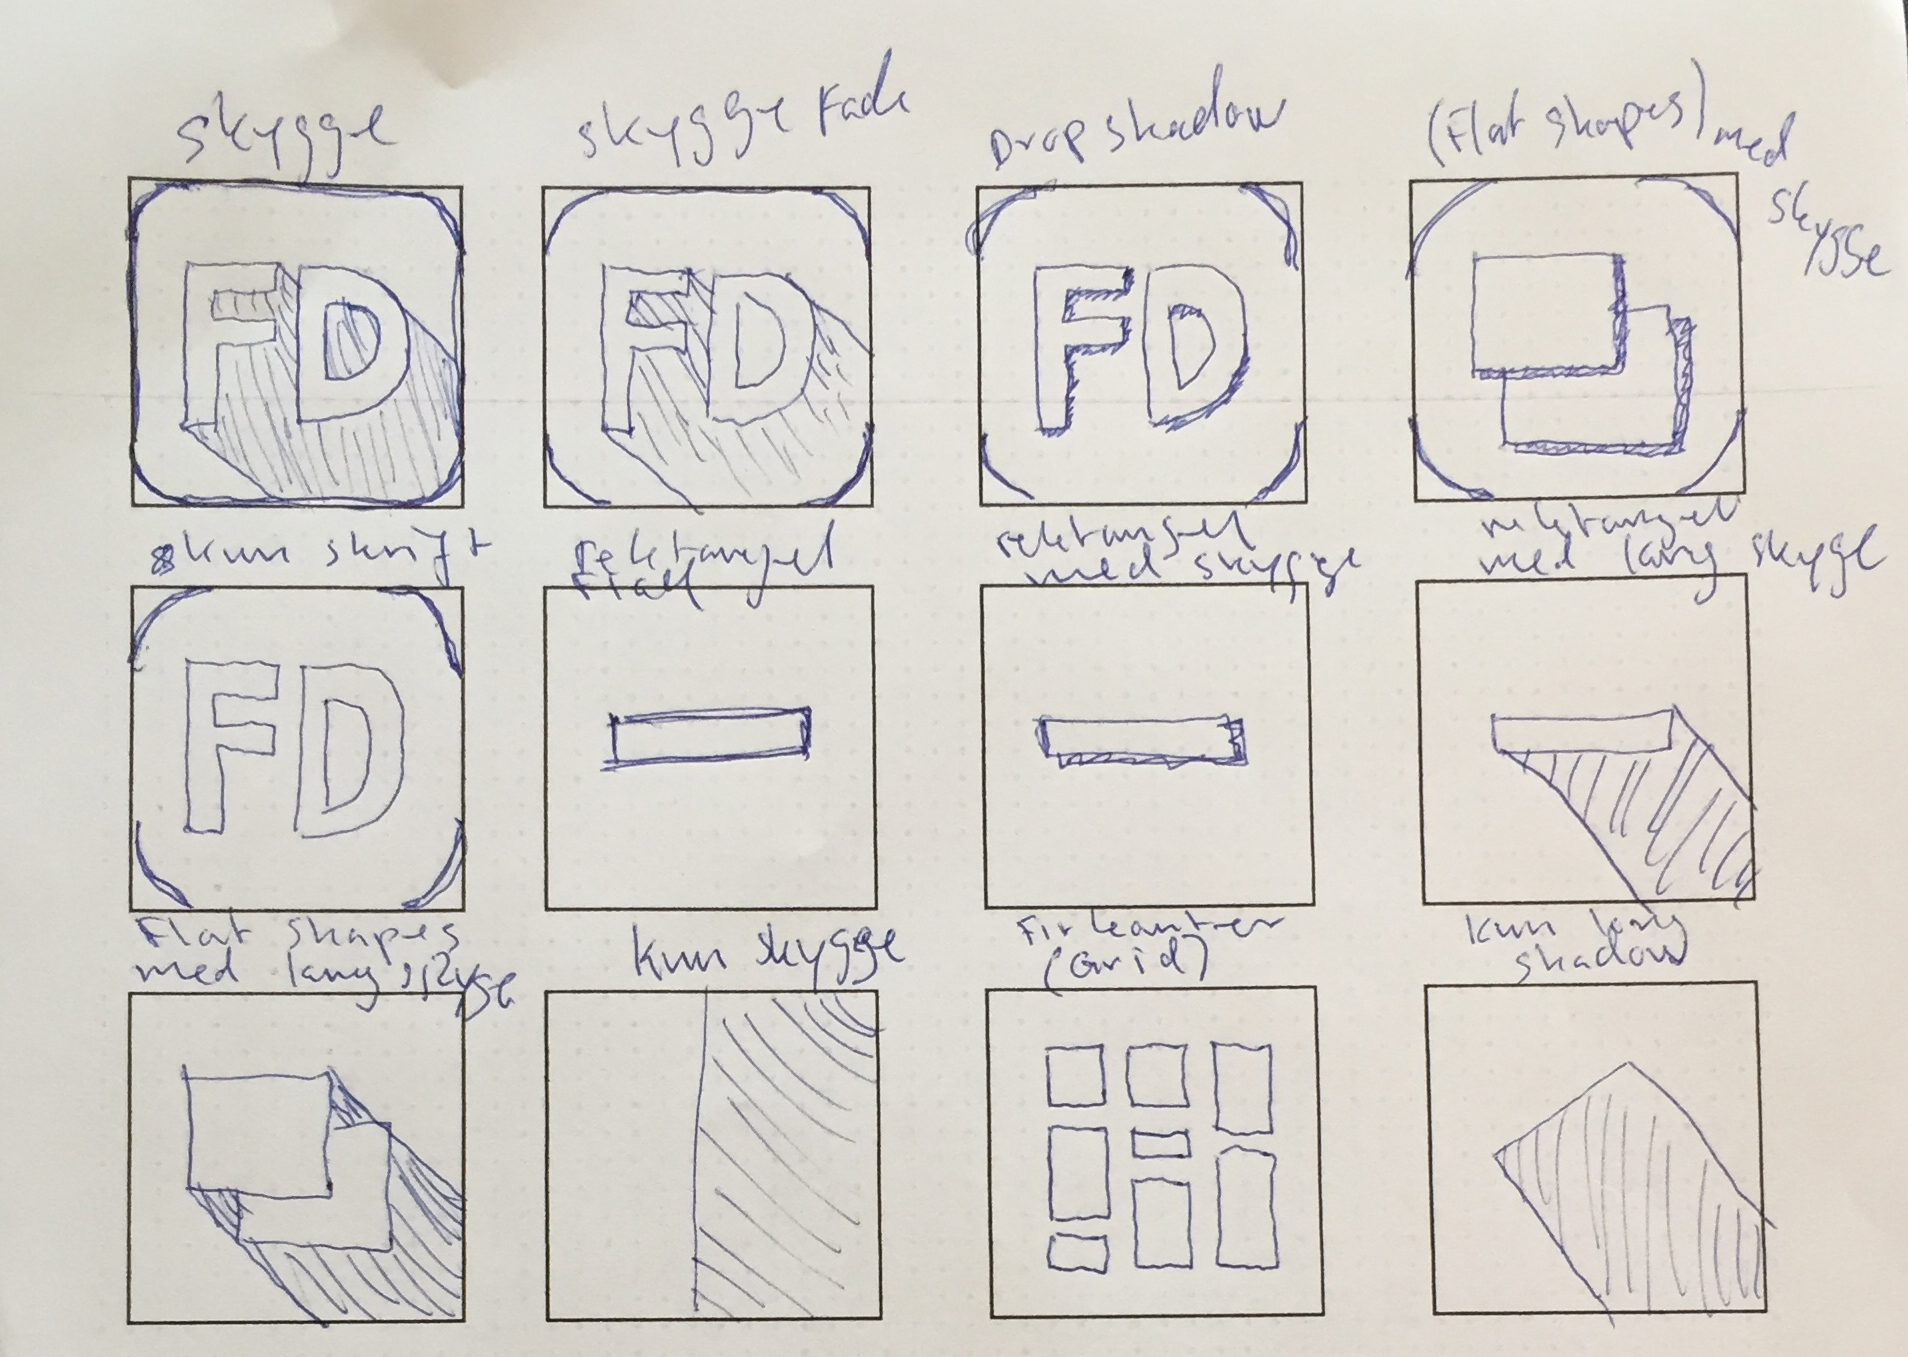 skygge
skygge Fade
Drop shadow
(Flat shapes) med
skygge
FD
FD
FD
kun skrift
rektangel
flad
rektangel
med skygge
rektangel
med lang skygge
FD
Flat shapes
med lang skygge
kun skygge
Firkanter
(Grid)
Kun long
shadow